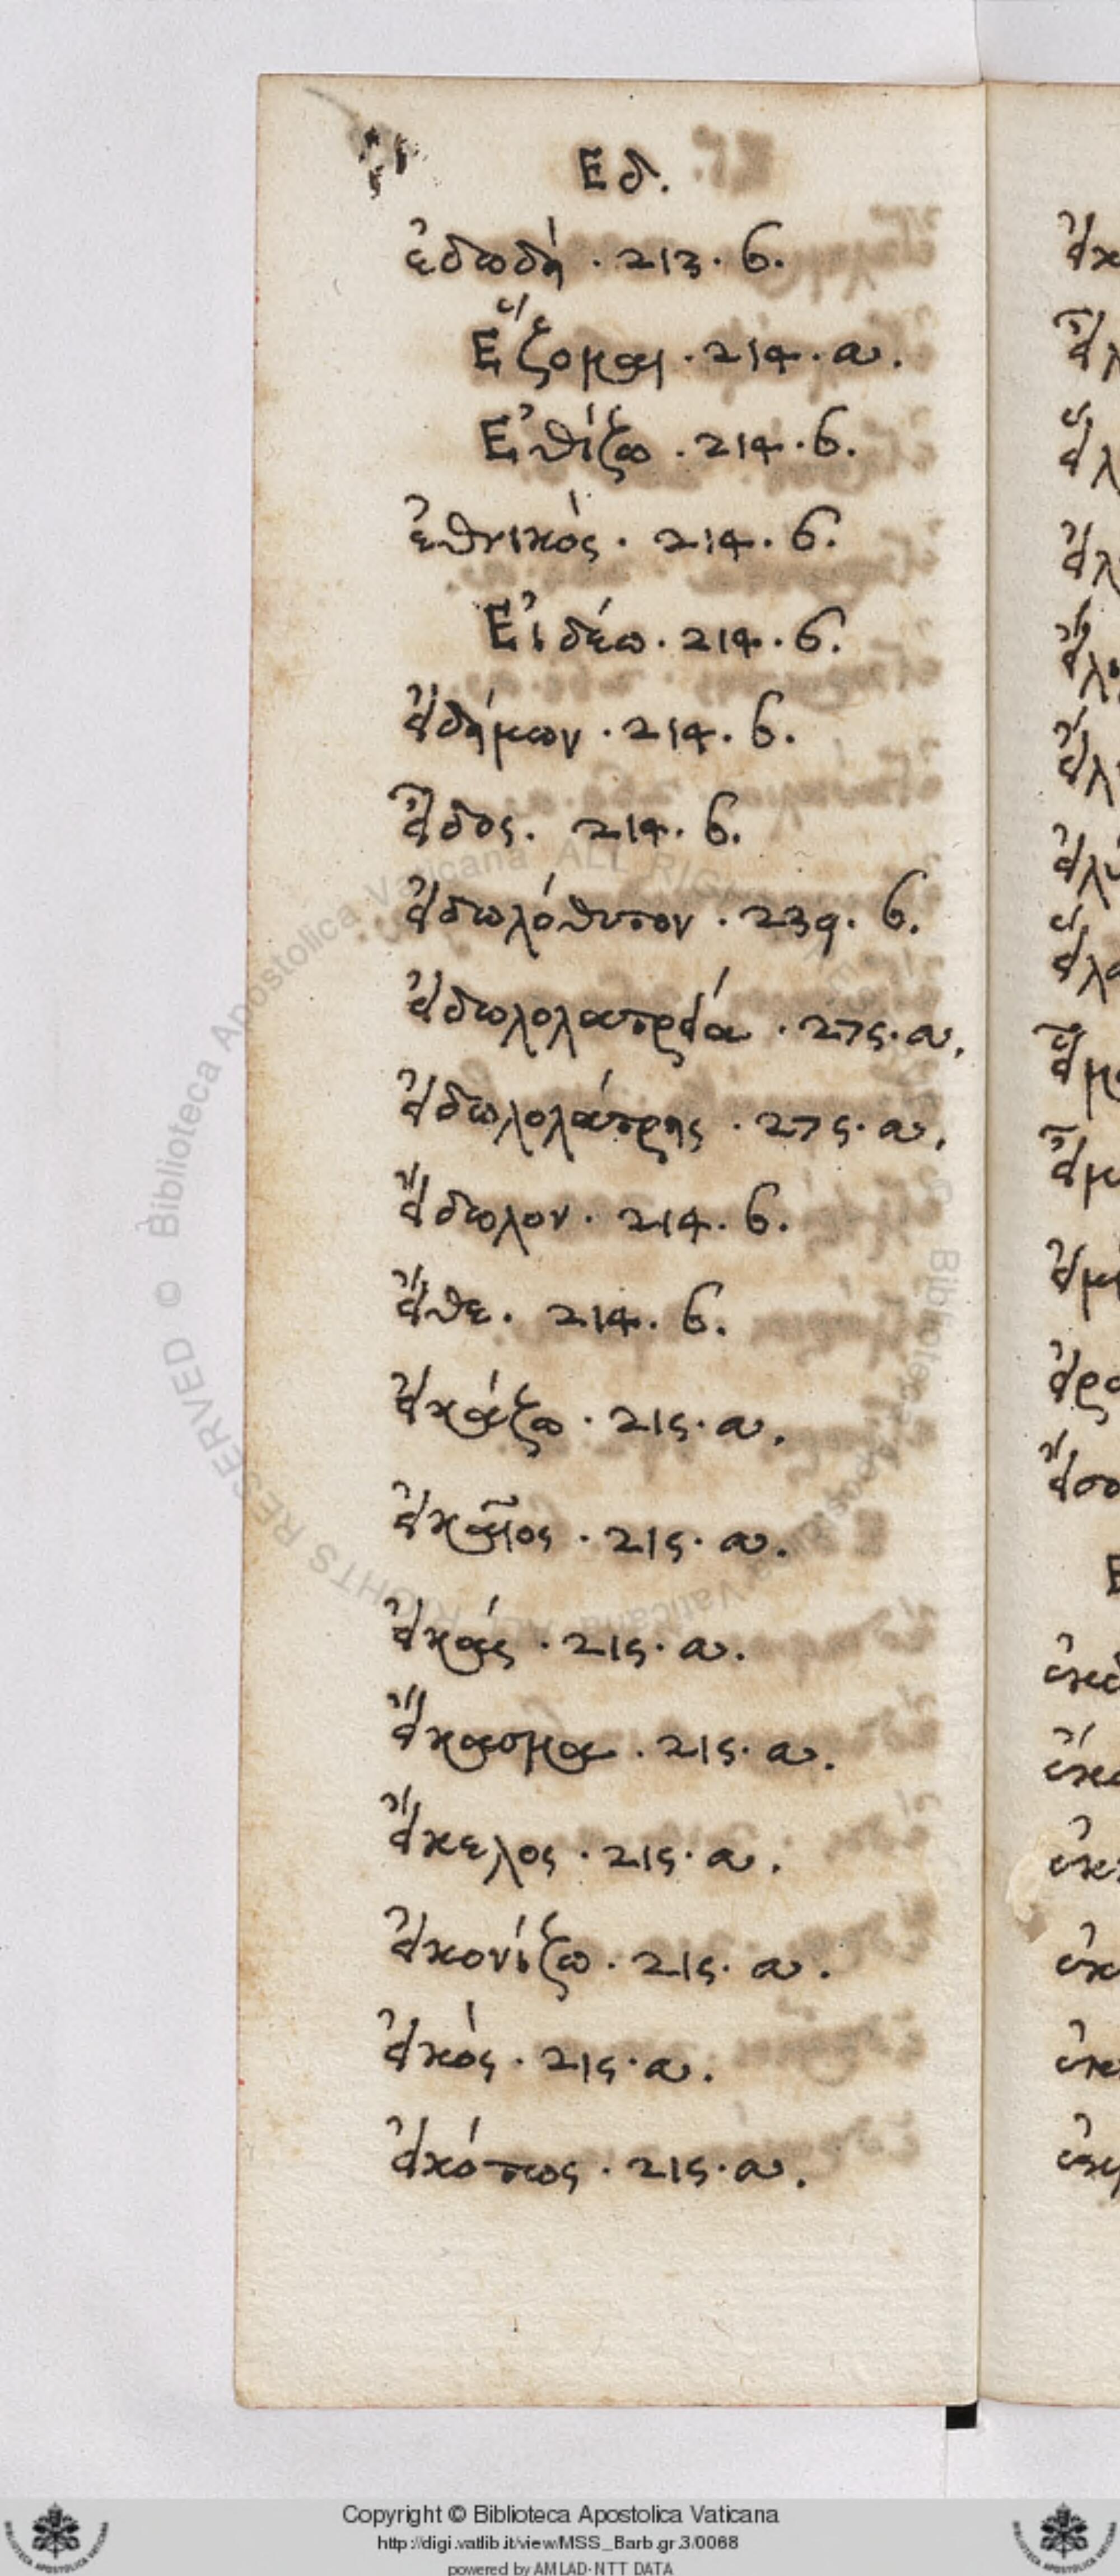 Εδ.
ἐδωδή · 213 · β.
Ἕζομαι · 214 · α.
Ἐθίζω · 214 · β.
ἐθνικός · 214 · β.
Εἰδέω · 214 · β.
εἰδήμων · 214 · β.
εἶδος · 214 · β.
εἰδωλόθυτον · 239 · β.
εἰδωλολατρεία · 275 · α.
εἰδωλολάτρης · 275 · α.
εἴδωλον · 214 · β.
εἴθε · 214 · β.
εἰκάζω · 215 · α.
εἰκαῖος · 215 · α.
εἰκάς · 215 · α.
εἴκασμα · 215 · α.
εἴκελος · 215 · α.
εἰκονίζω · 215 · α.
εἰκός · 215 · α.
εἰκότως · 215 · α.
Copyright © Biblioteca Apostolica Vaticana
http://digi.vatlib.it/view/MSS_Barb.gr.3/0068
powered by AMLAD-NTT DATA